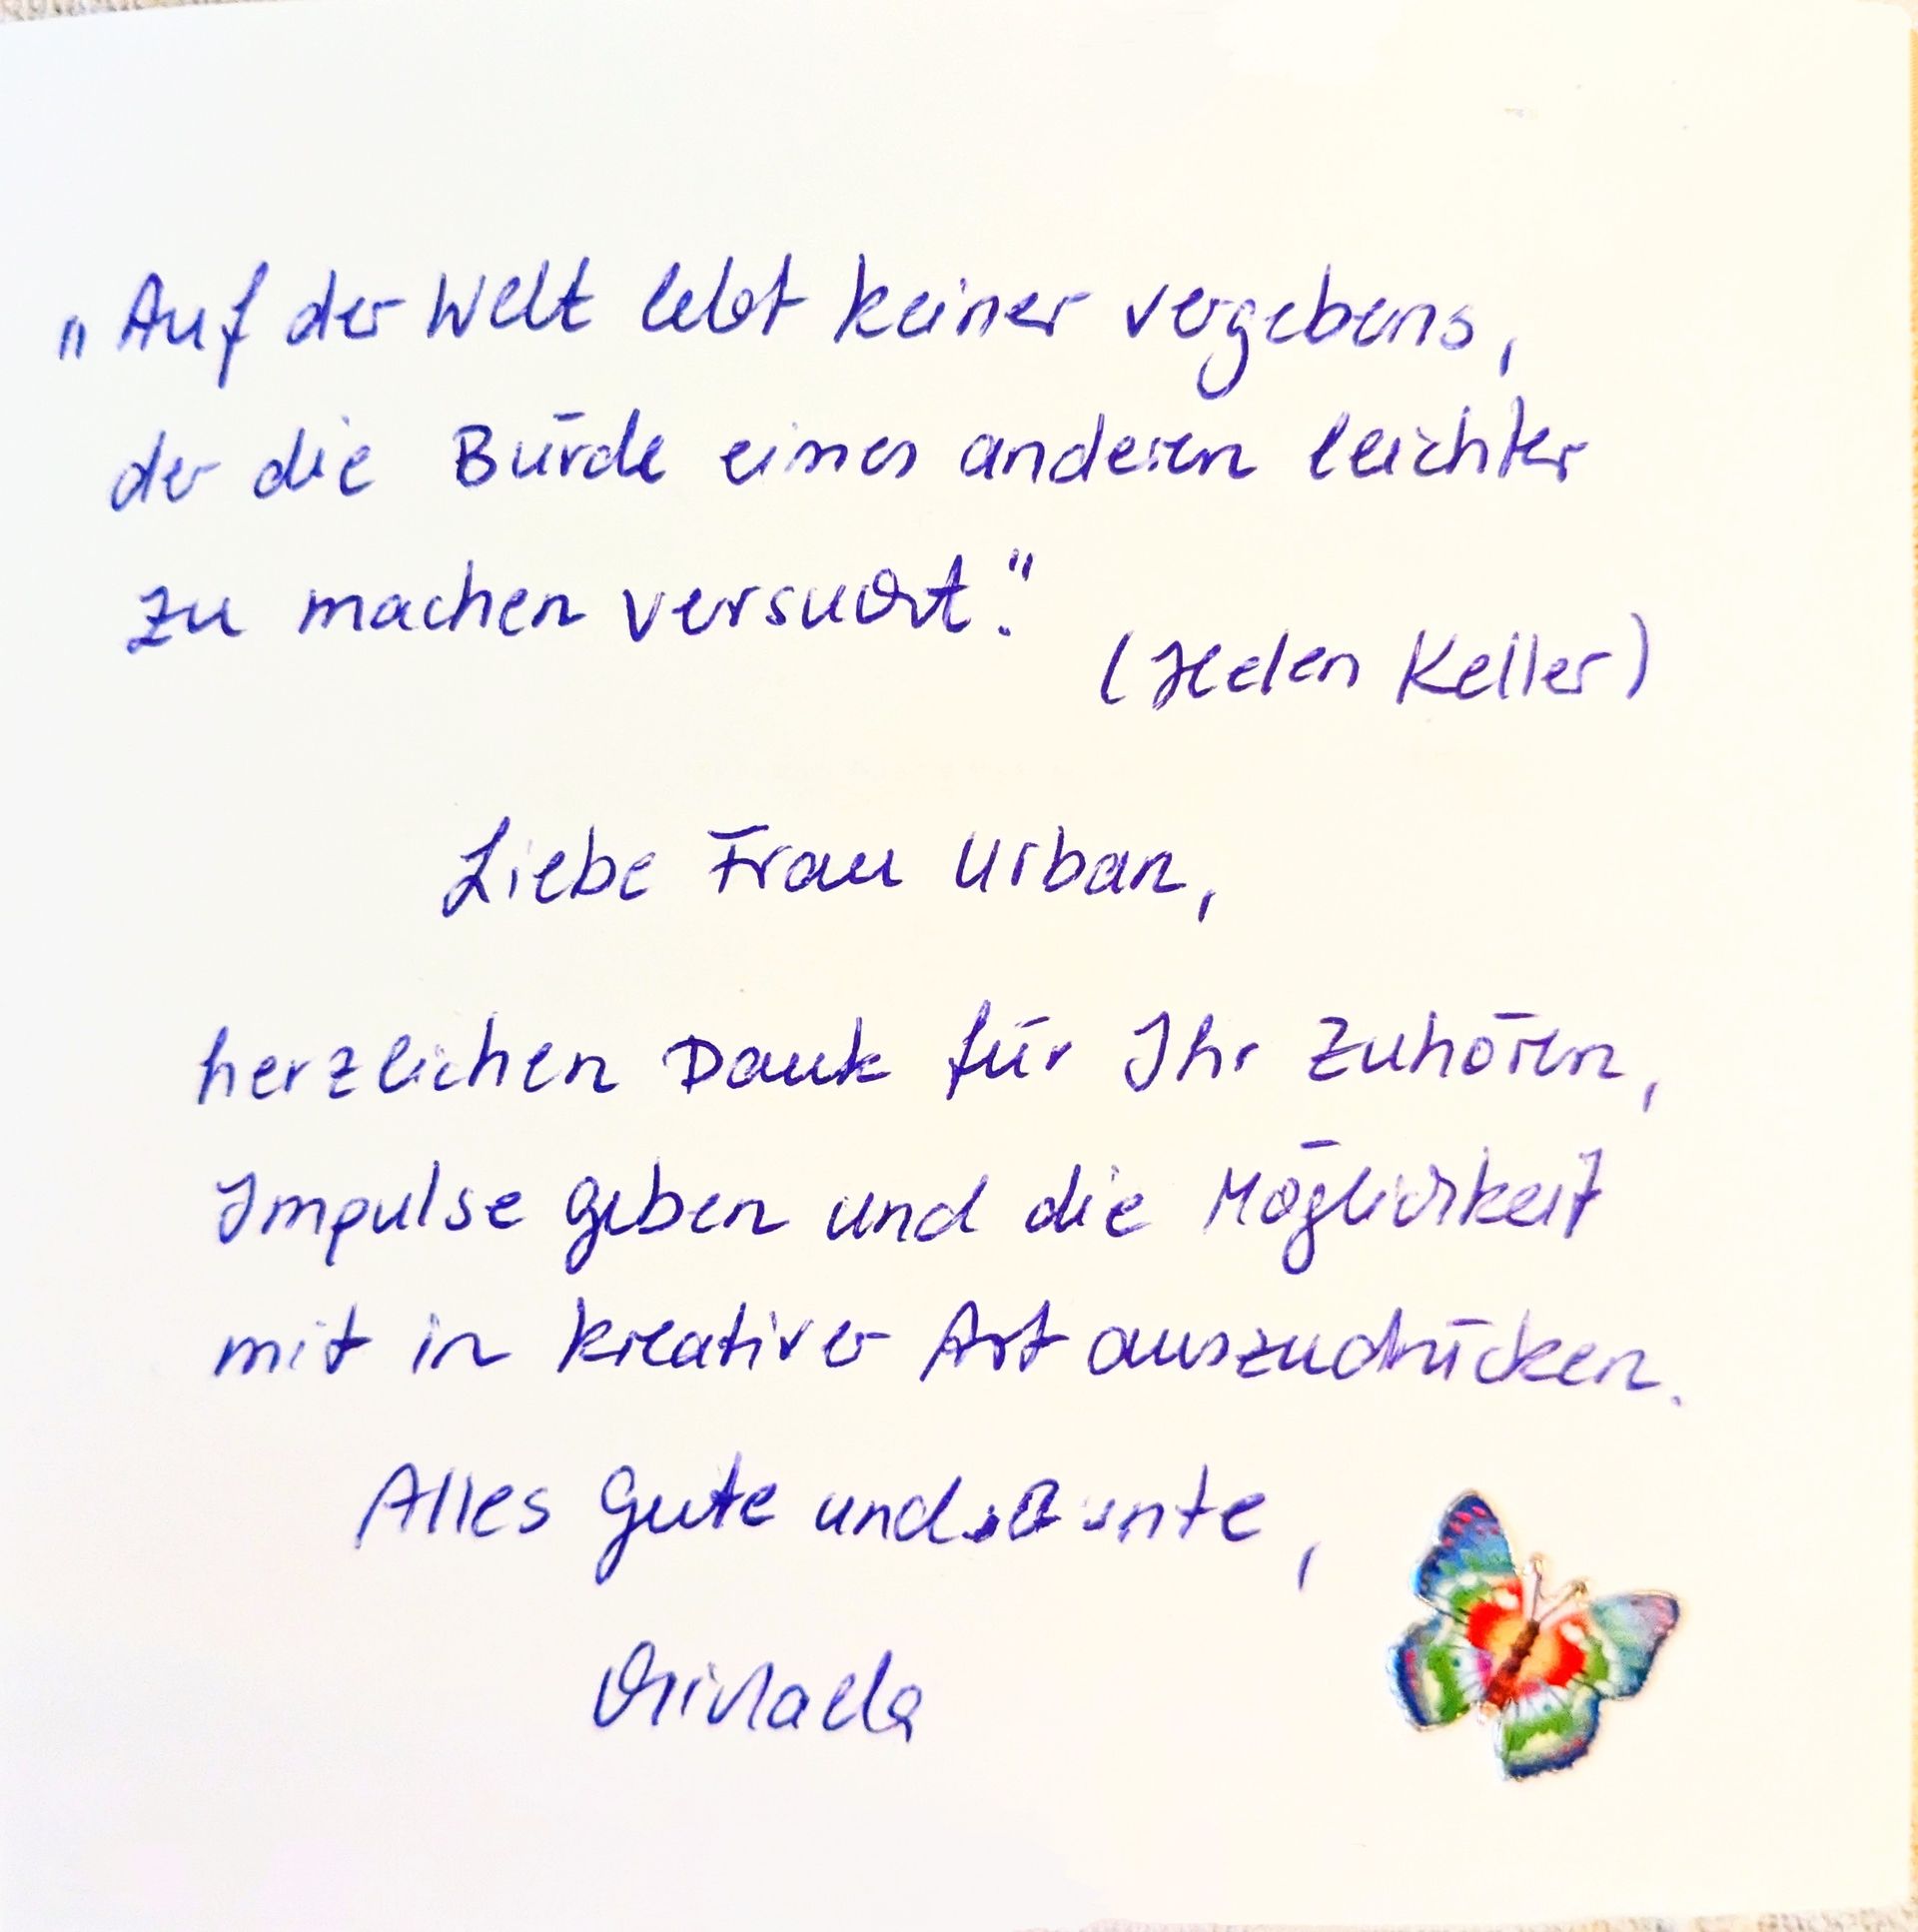 „Auf der Welt lebt keiner vergebens,
der die Bürde eines anderen leichter
zu machen versucht."
(Helen Keller)
Liebe Frau Urban,
herzlichen Dank für Ihr Zuhören,
Impulse geben und die Möglichkeit
mit in kreativer Art auszudrücken.
Alles Gute und Bunte,